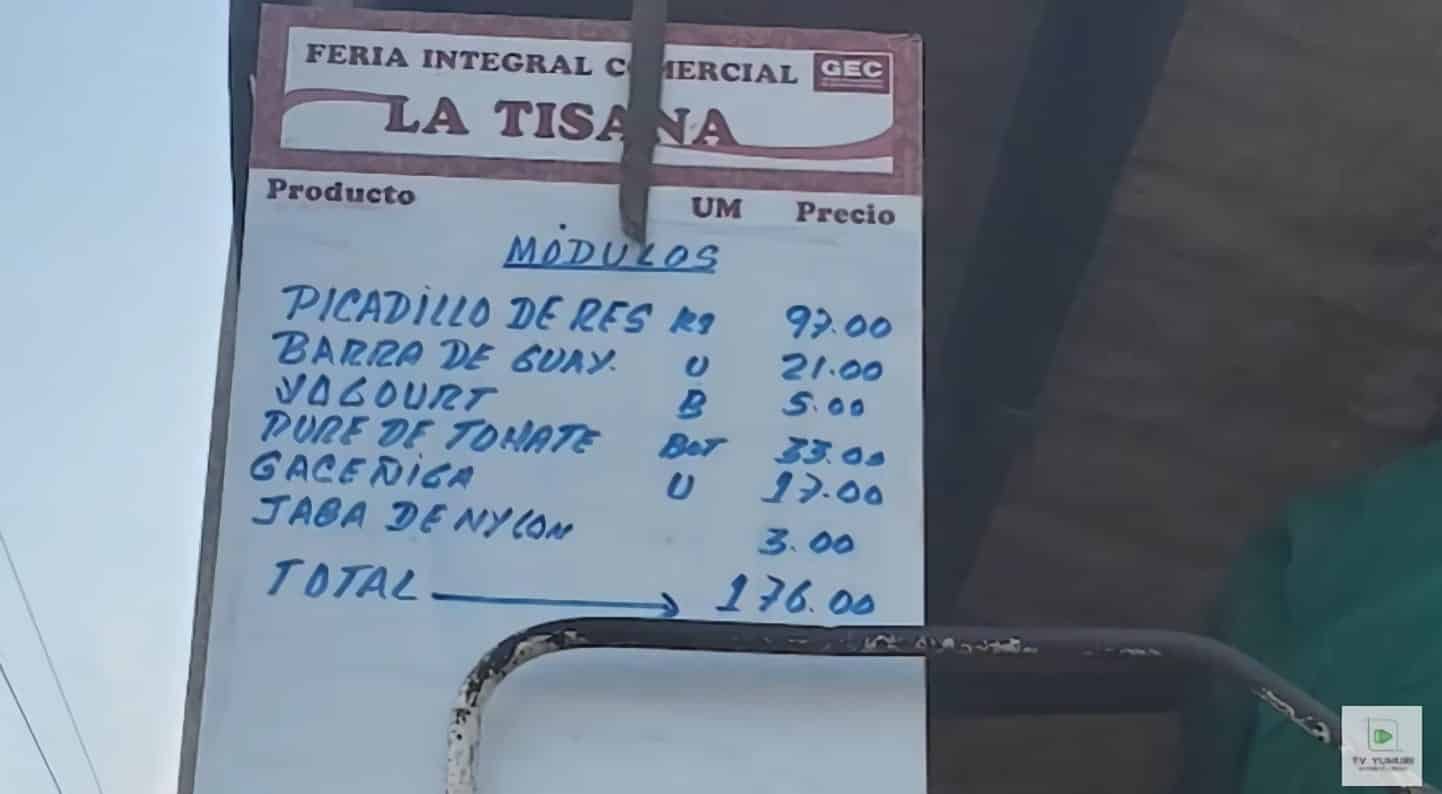 FERIA INTEGRAL COMERCIAL GEC
LA TISANA
Producto UM Precio
MÓDULOS
PICADILLO DE RES KG 97.00
BARRA DE GUAY. U 21.00
YOGOURT B 5.00
PURE DE TOMATE BOT 33.00
GACEÑIGA U 17.00
JABA DE NYLON 3.00
TOTAL → 176.00
TV YUMURI